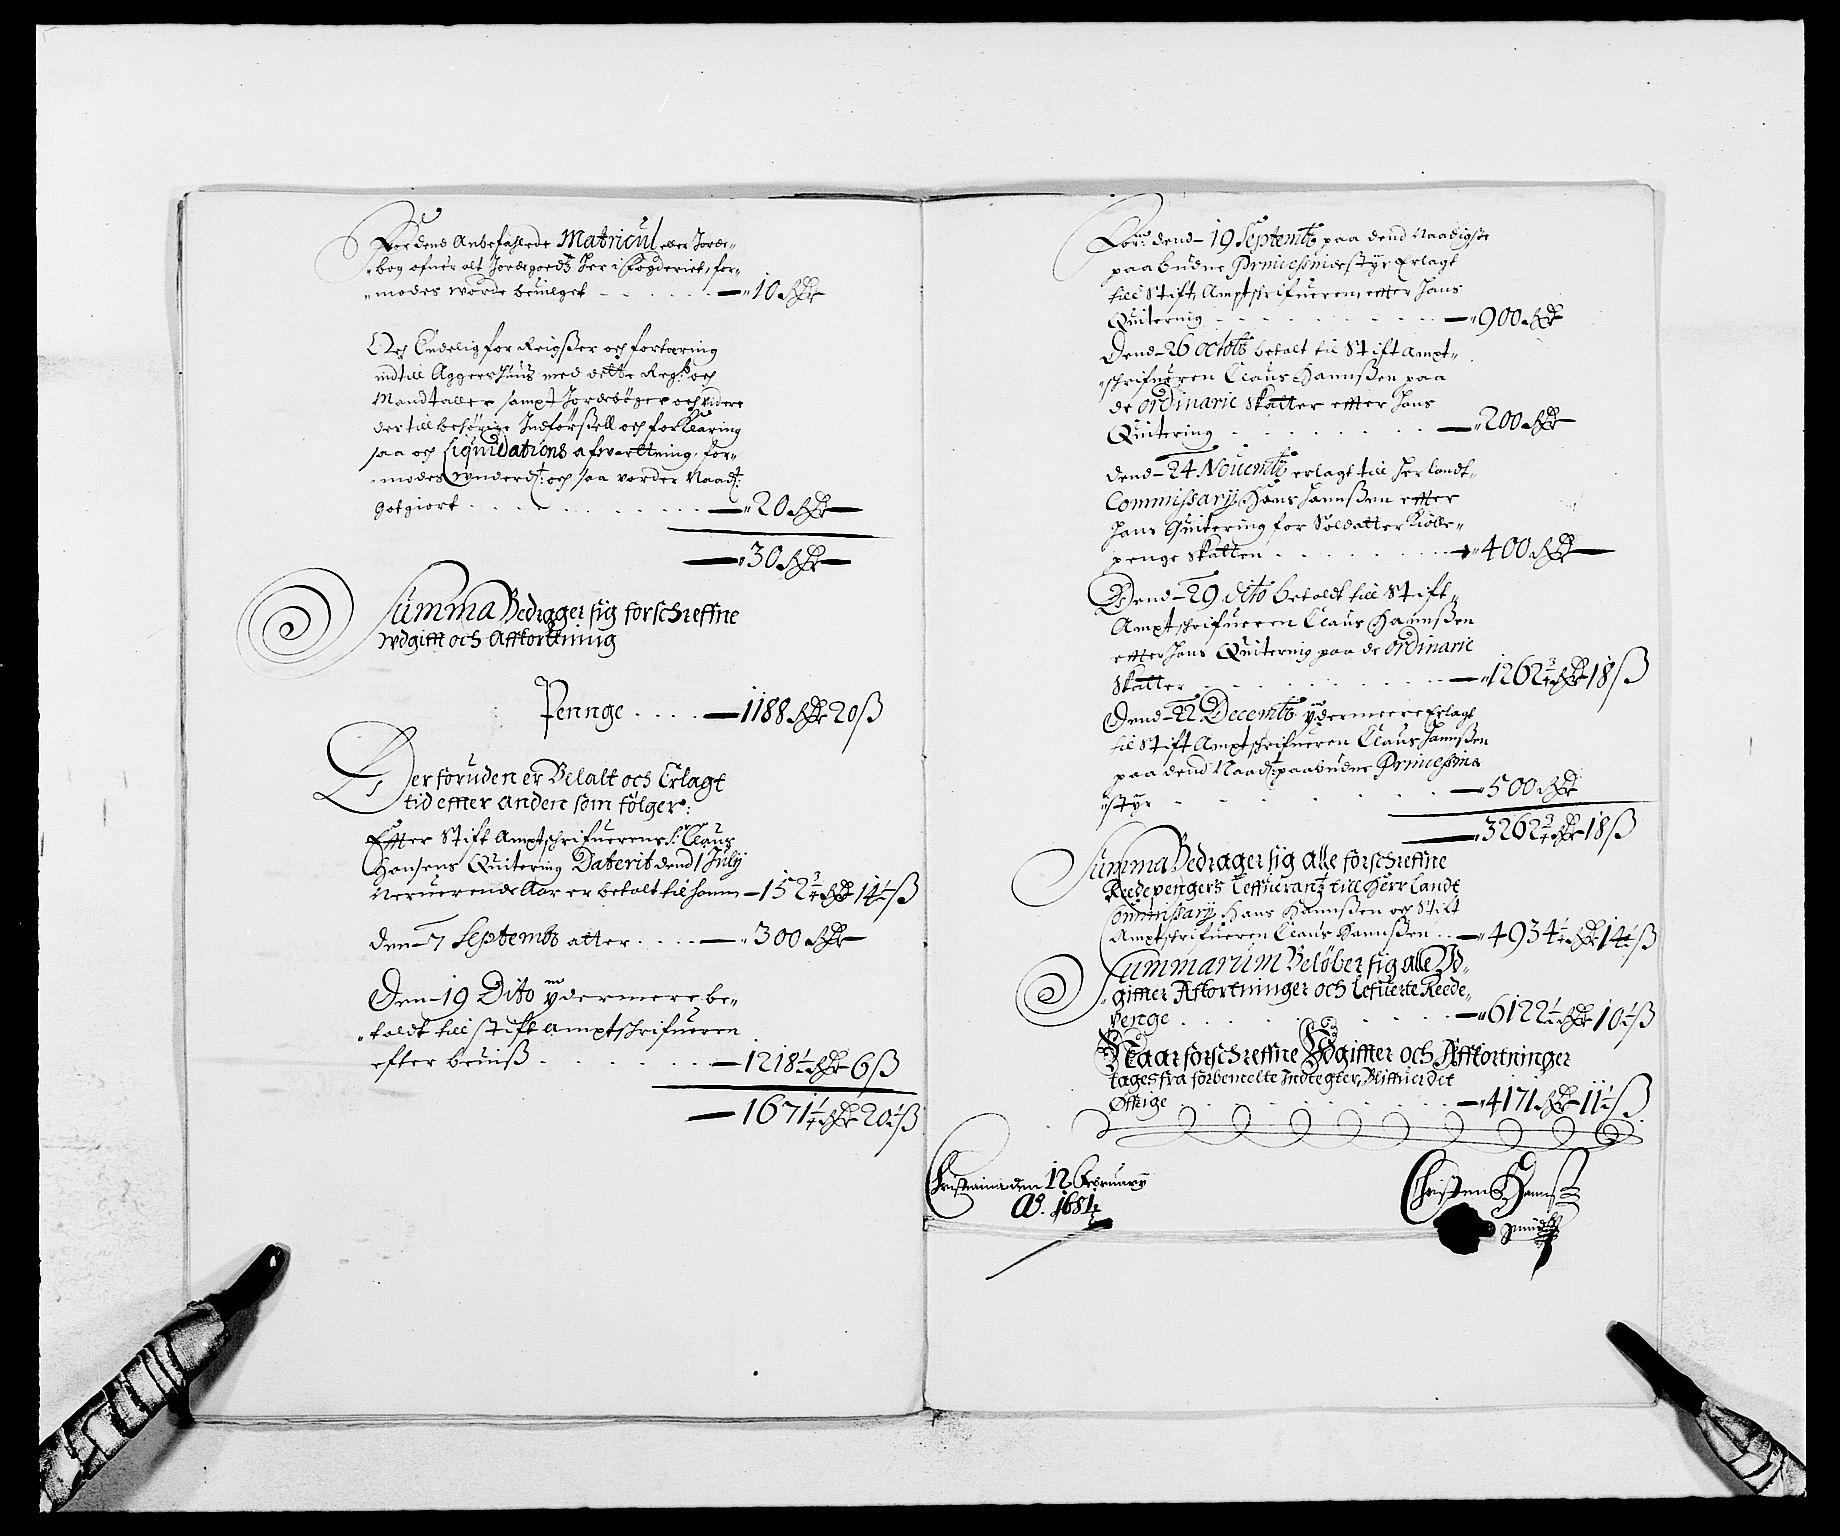 For dend Anbefahlede Matricul eller Jorde-
bog ofuer alt Jordegoedtz her i fougderiet, for-
modes worde beuilget - - - - - - 10 Rdr
Och Endelig for Reigsser och fortæring
indtill Aggershuus med dette Regsk: och
Mandtaller sampt Jordebøger och videre
der till behørige Indførssell och forklaring
saa och Liquidations afvartning, for-
modes vnderd: och saa vorder Naad:
gotgiort - - - - - - 20 Rdr
30 Rdr
Summa Bedrager sig forschreffne
vdgifft och Affkortning
Pennge - - - - 1188 Rdr 20 ß
Der foruden er Betalt och Erlagt
tid effter anden som følger:
Effter Stift Amptschrifuerens Sr: Claus
Hansens Quitering Daterit dend 1 July
Neruerende Aar er betalt til ham - 152 3/4 Rdr 14 1/2 ß
den 7 Septembr atter - - - - 300 Rdr
Den 19 Dito ydermere be-
taldt till stift amptschrifueren
efter beuiß - - - - - - 1218 1/2 Rdr 6 ß
1671 1/4 Rdr 20 1/2 ß
Noch dend 19 Septembr paa dend Naadigste
paabudne Princessinde styr Erlagt
till Stift Amptschrifueren, effter hans
Quitering - - - - - - 900 Rdr
Dend 26 octobr betalt til Stift Ampt-
schrifueren Claus Hannßen paa
de ordinarie Skatter effter hans
Quitering - - - - - - 200 Rdr
dend 24 Nouembr erlagt till her landt
Commissary Hans Hannßen effter
hans Quitering for Soldatter Klæde-
penge skatten - - - - - - 400 Rdr
Dend 29 dito betaldt till Stift
Amptschrifueren Claus Hannßen
effter hans Quitering paa de ordinarie
Skatter - - - - - - 1262 3/4 Rdr 18 ß
Dend 22 Decembr ydermeere Erlagt
til Stift Amptschrifueren Claus Hannßen
paa dend Naad: paabudne Princessinde
styr - - - - - - 500 Rdr
3262 3/4 Rdr 18 ß
Summa Bedrager sig alle forschreffne
Reedepengers Leffuerantz till Herr Landt
Commissary Hans Hannßen och Stift
Amptschrifueren Claus Hannßen - - 4934 1/4 Rdr 14 1/2 ß
Summarum Beløber sig alle Vd-
giffter Afkortninger och lefuerte Reede-
penge - - - - - - 6122 1/2 Rdr 10 1/2 ß
Naar forschreffne Vdgiffter och Affkortninger
tages fra forbemelte Indtegter, Bliffuer det
Øfrige - - - - - - 4171 Rdr 11 1/2 ß
Christiania den 12 February
Ao. 1681
Christen Hannß